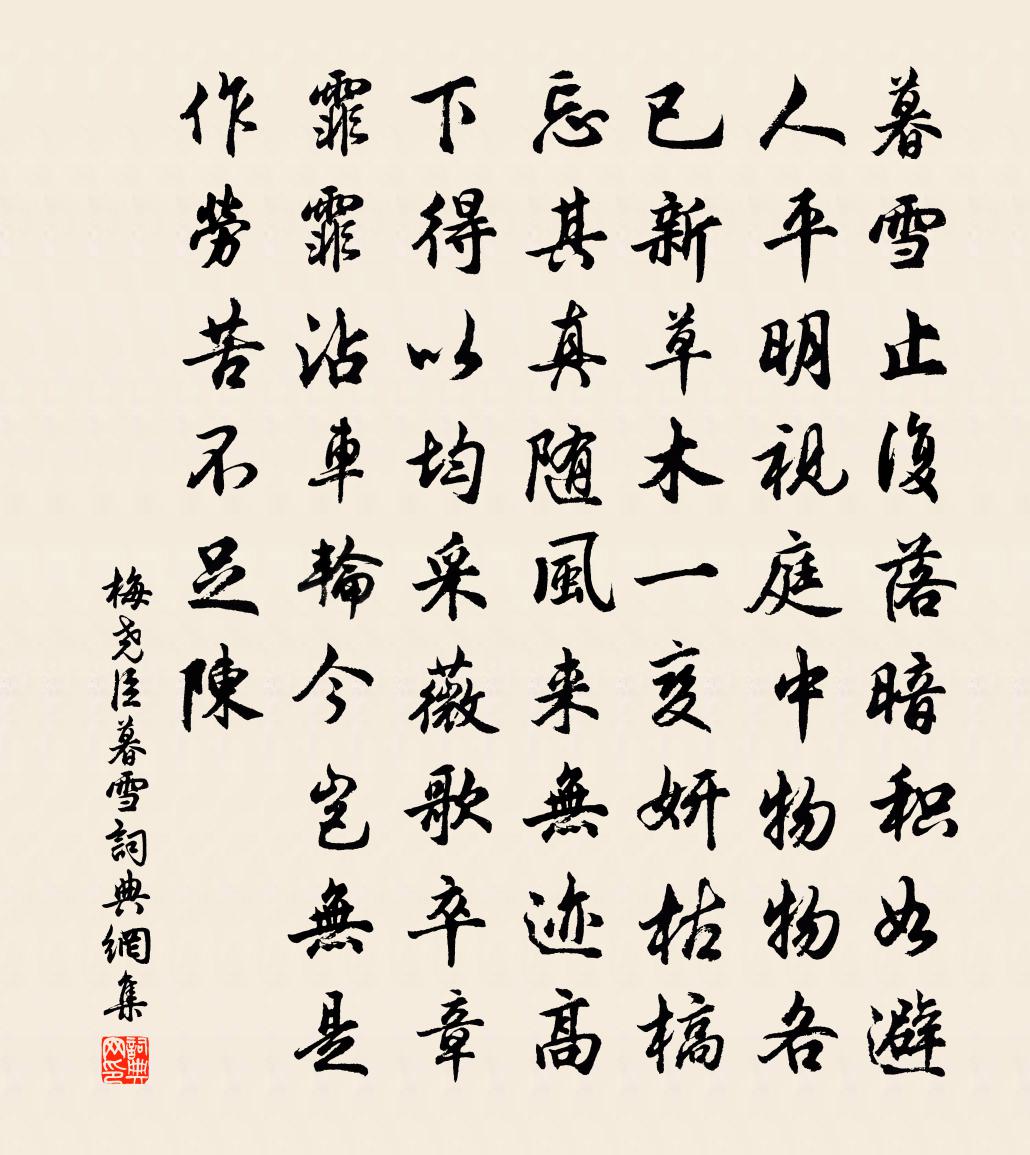 暮雪止復落暗积如避
人平明視庭中物物各
已新草木一变妍枯槁
忘其真随風来無迹高
下得以均采薇歌卒章
霏霏沾車輪今岂無是
作勞苦不足陳
梅尧臣暮雪詞典網集
詞典网印